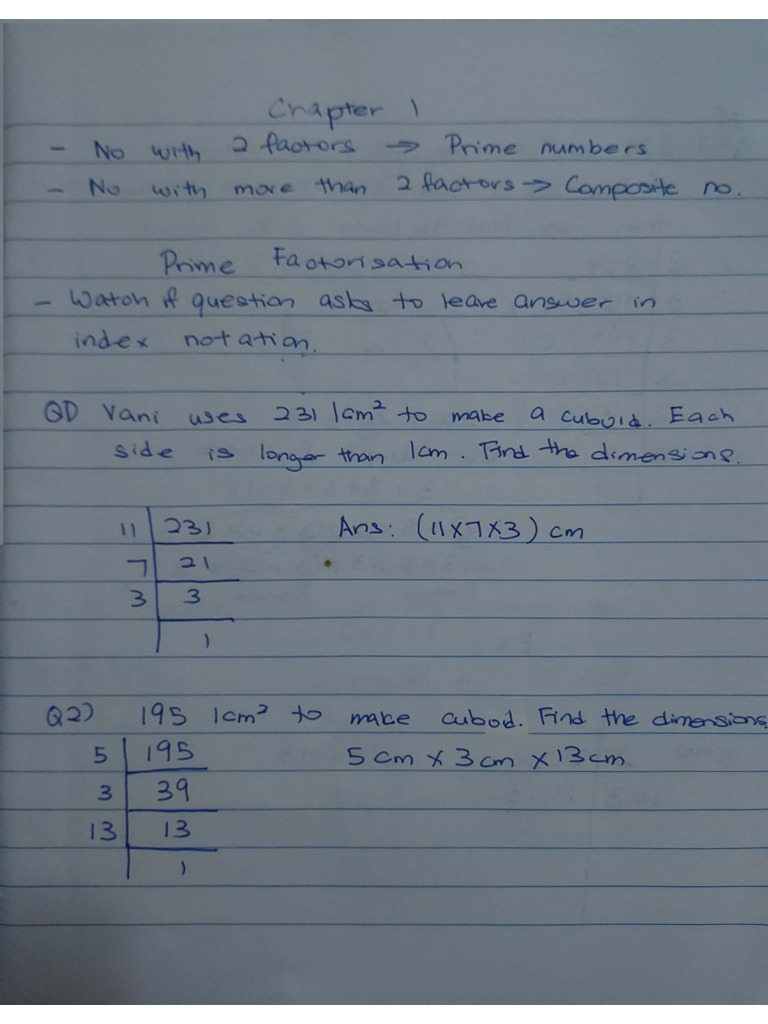 Chapter 1
- No with 2 factors → Prime numbers
- No with more than 2 factors → Composite no.
Prime Factorisation
- Watch if question asks to leave answer in
index notation.
Q1) Vani uses 231 1cm² to make a cuboid. Each
side is longer than 1cm. Find the dimensions.
11 | 231 Ans: (11×7×3) cm
7 | 21
3 | 3
1
Q2) 195 1cm² to make cubod. Find the dimensions.
5 | 195 5cm × 3cm × 13cm
3 | 39
13 | 13
1